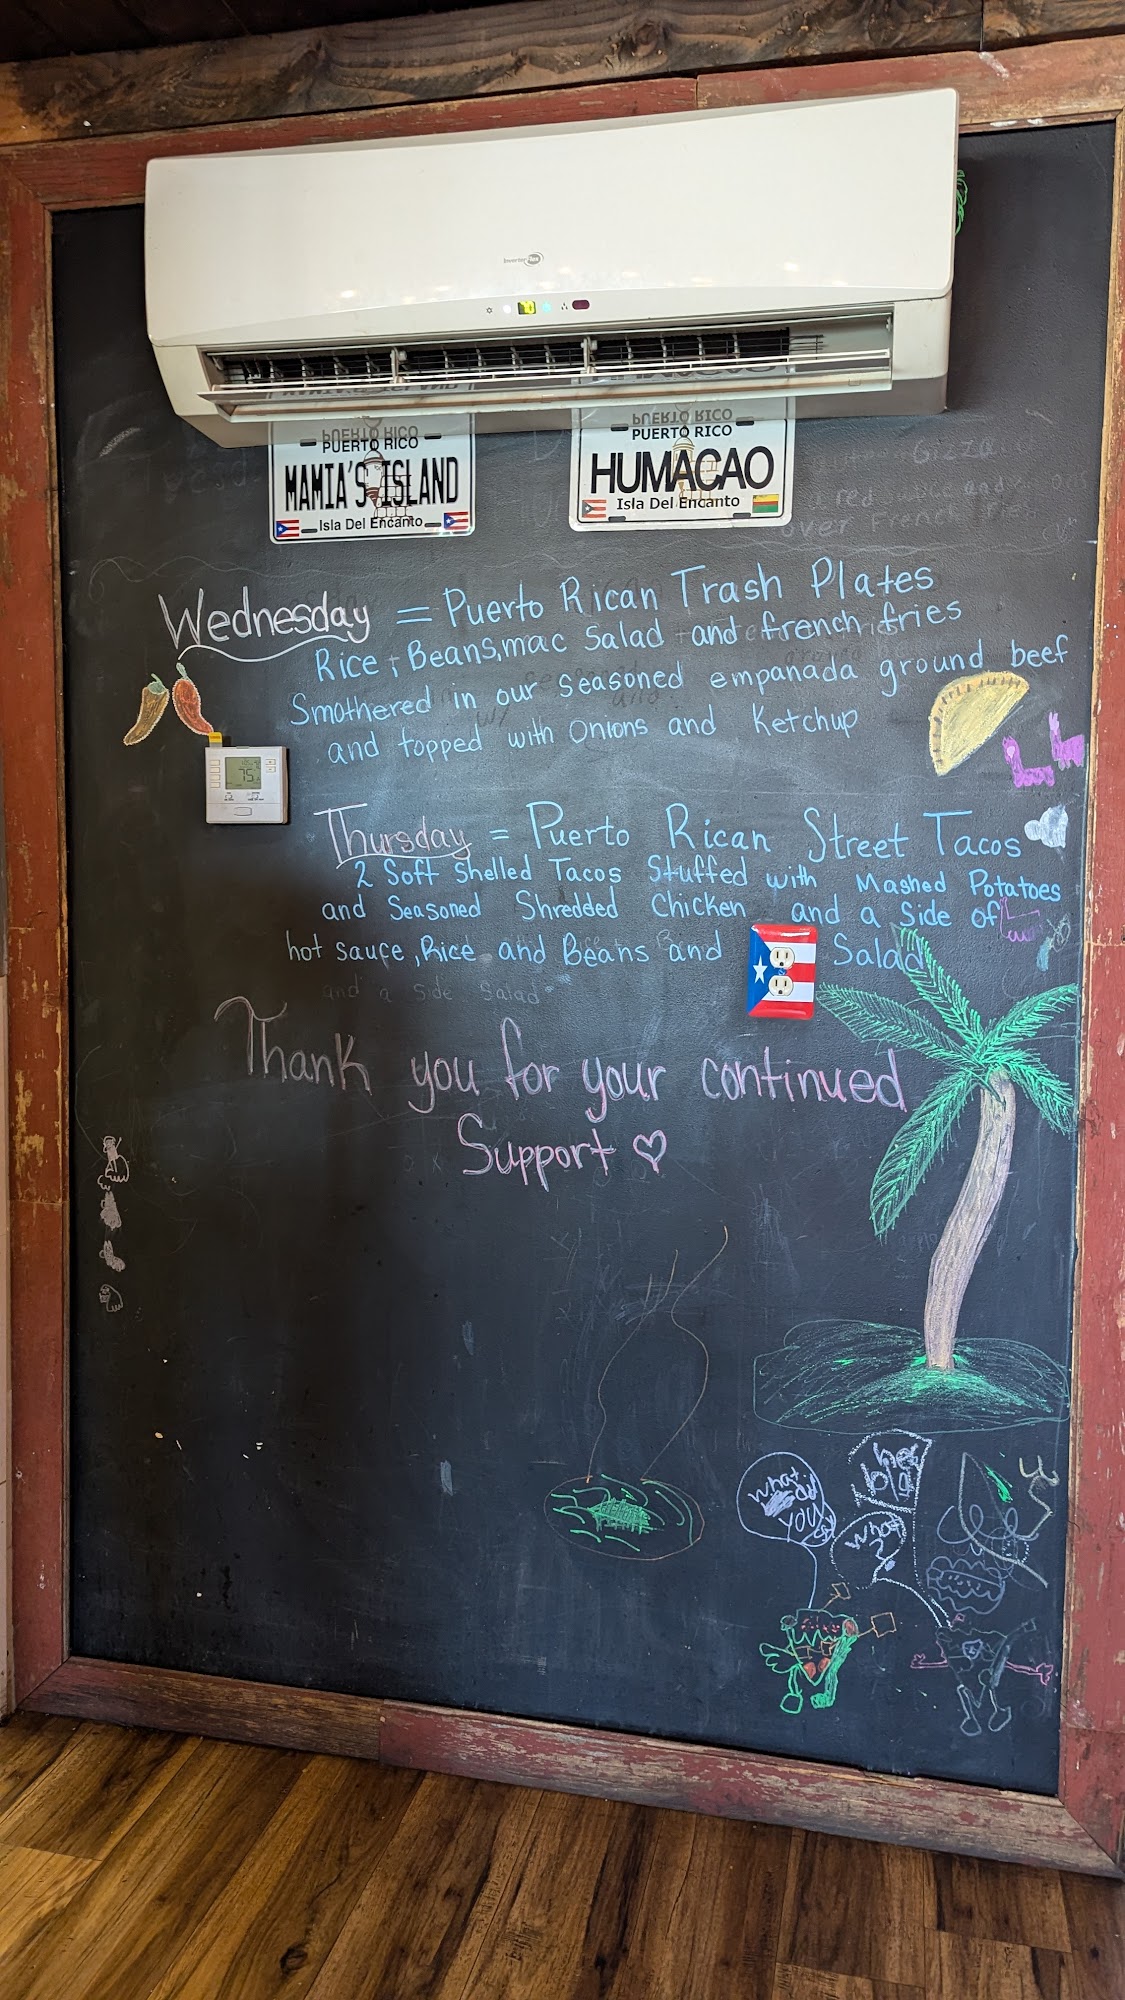 PUERTO RICO
MAMIA'S ISLAND
Isla Del Encanto
PUERTO RICO
HUMACAO
Isla Del Encanto
Gizza
over
Wednesday = Puerto Rican Trash Plates
Rice + Beans, mac Salad and french fries
Smothered in our seasoned empanada ground beef
and topped with Onions and Ketchup
75
Thursday = Puerto Rican Street Tacos
2 Soft Shelled Tacos Stuffed with Mashed Potatoes
and Seasoned Shredded Chicken and a Side of
hot sauce, Rice and Beans and Salad
and a side salad
Thank you for your continued
Support ♡
what did
YOU
say
what
?